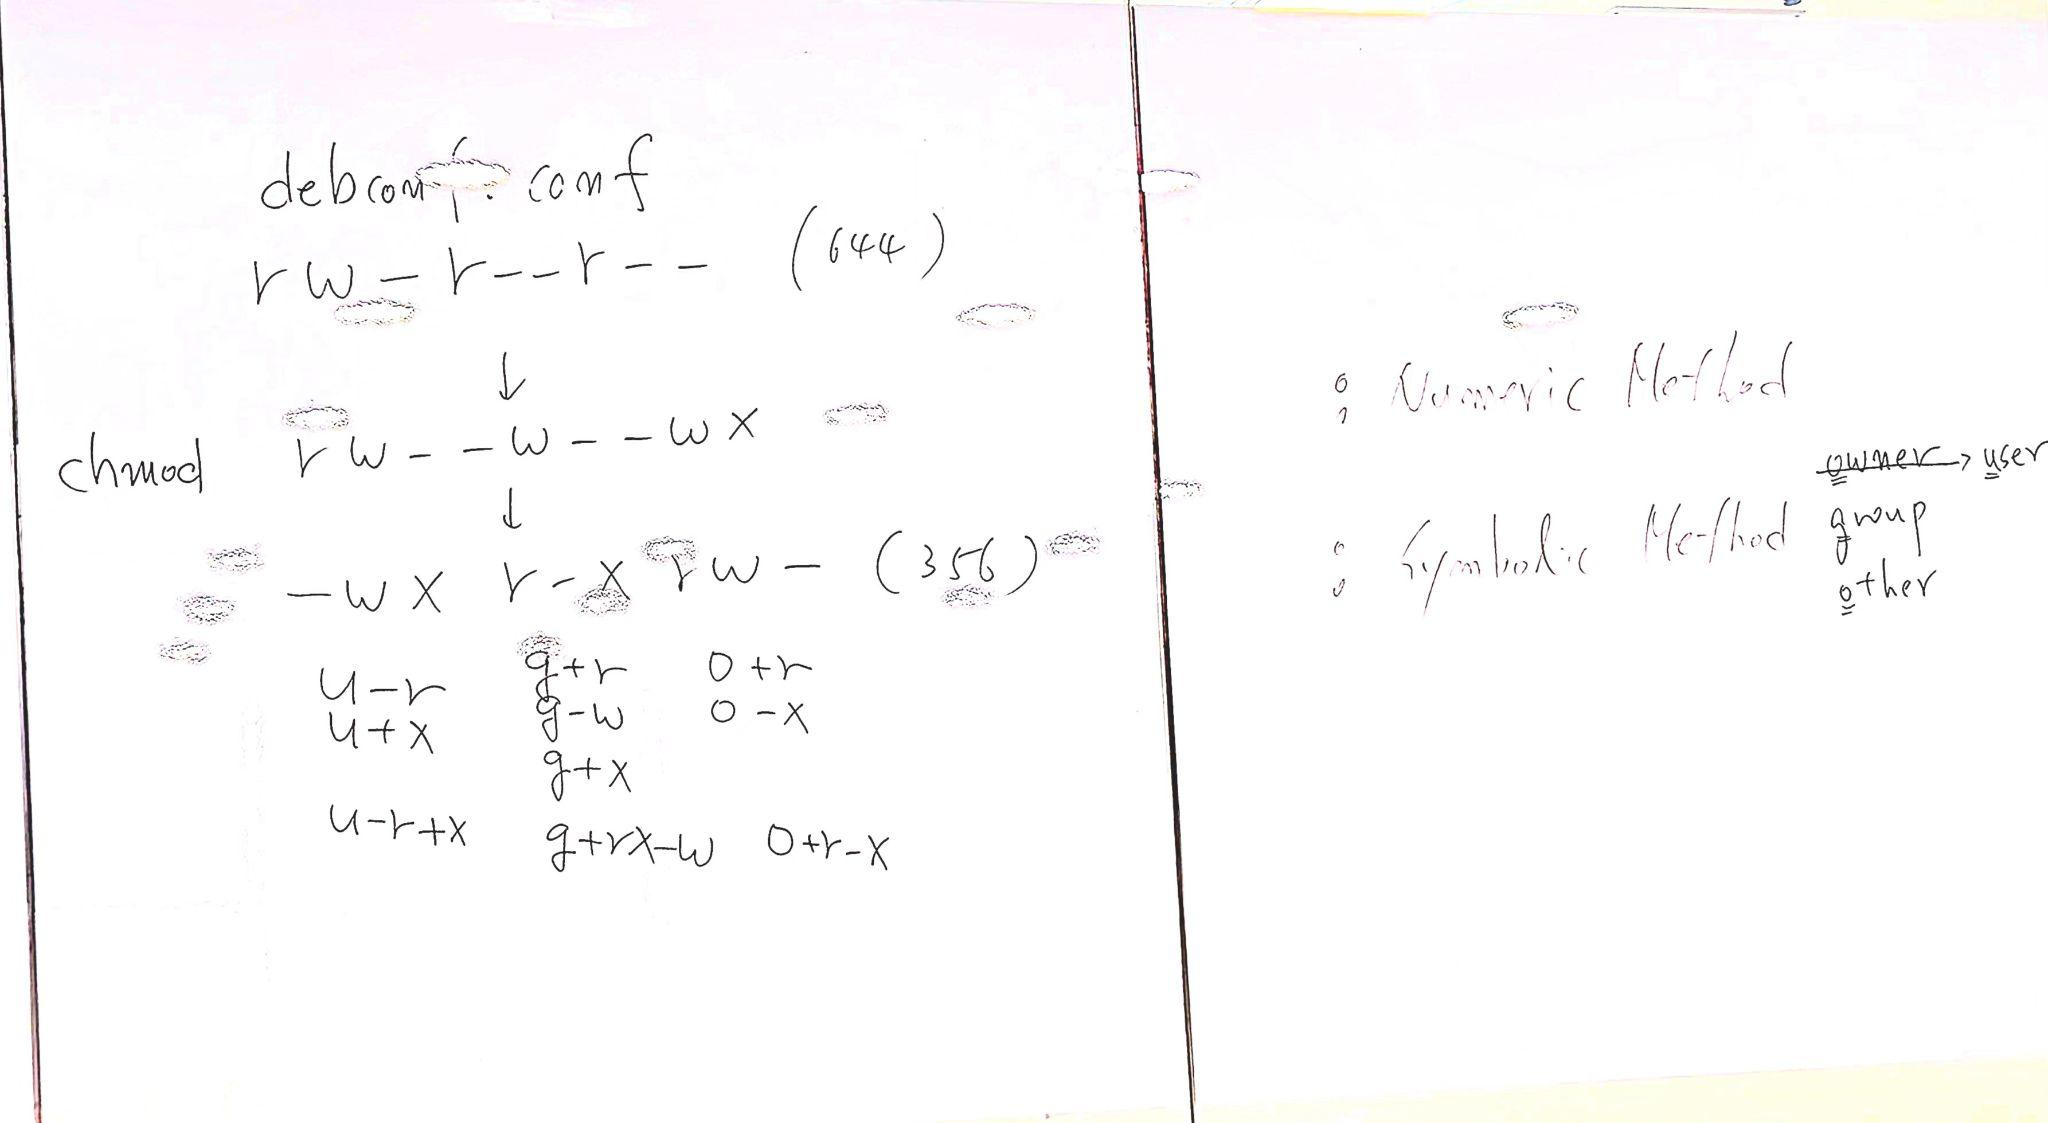 debconf.conf
rw-r--r-- (644)
↓
chmod rw--w--wx
↓
-wx r-x rw- (356)
u-r g+r o+r
u+x g-w o-x
g+x
u-r+x g+rx-w o+r-x
: Numeric Method
owner > user
: Symbolic Method group
other